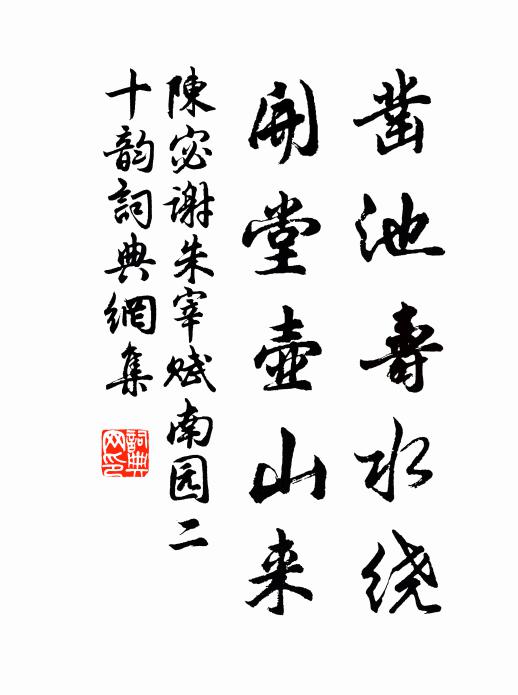 凿池寿水绕
開堂壶山来
陳宓谢朱宰赋南园二
十韵詞典網集
詞典
网印